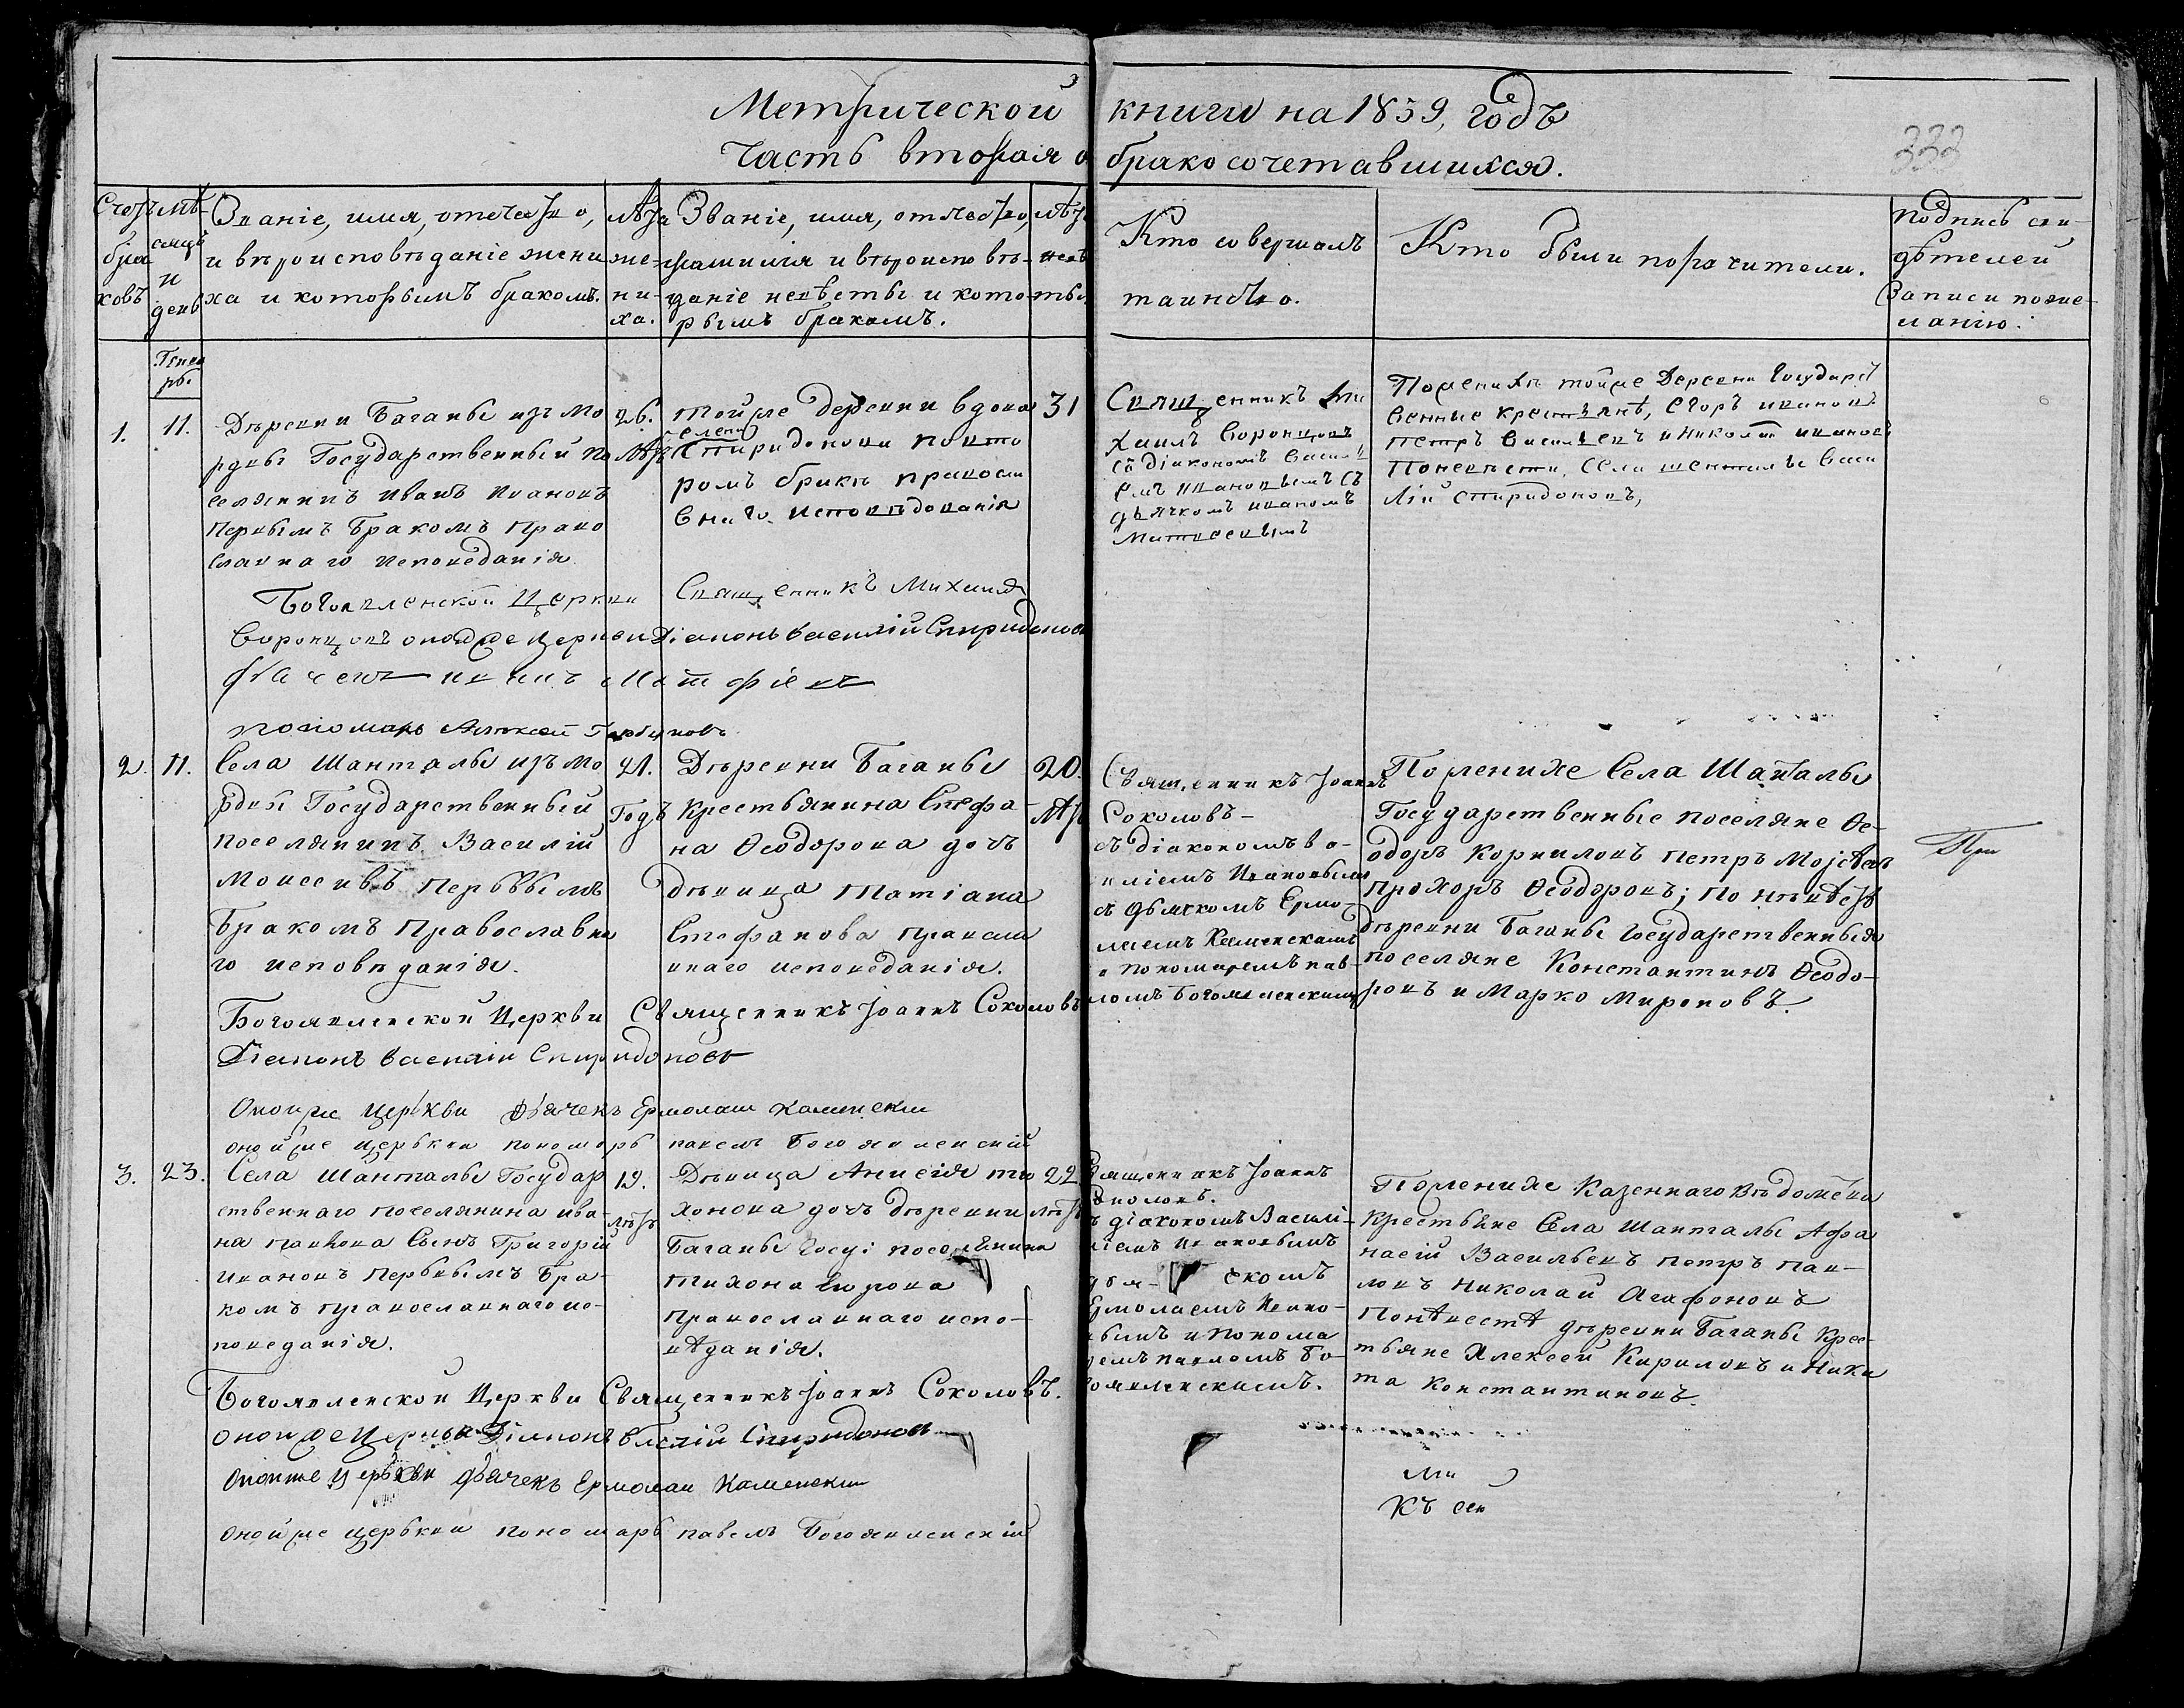 Метрической книги на 1859, годъ
Часть вторая о бракосочетавшихся.
332
Счетъ бра ковъ
Мѣ- сяцъ и день
Званіе, имя, отечество,
и вѣроисповѣданіе жени
ха и которымъ бракомъ.
Лѣта
же-
ни-
ха.
Званіе, имя, отчество,
фамилія и вѣроиспо вѣ-
даніе невѣсты и кото
рымъ бракомъ.
Лѣта
невѣ
сты
Кто совершалъ
таинство.
Кто были поручители.
Подпись сви-
дѣтелей
записи по же-
ланію.
Генва
рь.
1.
11.
Дѣревни Баганы изъ Мо
рдвы Государственный по
селянинъ Иванъ Ивановъ
Первымъ Бракомъ Право
славнаго исповеданія
26.
Лѣтъ
Тойже деревни вдова
Елена
Спиридонова повто
ромъ браке правосла
внаго исповѣданія
31
Священникъ Ми
хаилъ Воронцовъ
съ діакономъ Васил
емъ Ивановымъ съ
дьячкомъ иваномъ
Матвеевымъ
По женихѣ тойже Деревни Государст
венные крестьянѣ, Егоръ ивановъ
Петръ Васильевъ и Николай ивановъ
По невѣсти, Села шенталы Васи
лій Спиридоновъ,
Богоявленской Церкви Священникъ Михаилъ
Воронцовъ оной же церкви Діаконъ Василій Спиридоновъ
дьячекъ иванъ Матфіевъ
пономарь Алѣксей
2.
11.
Села Шанталы изъ Мо
рдвы Государственный
поселянинъ Василій
Моисеивъ первымъ
Бракомъ Православна
го исповѣданія.
21.
Годъ
Дѣревни Баганы
Крестьянина Стефа-
на Ѳеодорова дочь
Дѣвица Татіана
Стефанова правосла
внаго исповеданія.
20.
Лѣт
Священникъ Іоаннъ
Соколовъ-
съ діакономъ Ва-
силіемъ Ивановымъ
съ дьячкомъ Ермо-
лаемъ Каменскимъ
и пономаремъ пав-
ломъ Богоявленскимъ
По женихе Села Шанталы
Государственные поселяне Ѳе-
одоръ Корниловъ Петръ Моисѣевъ
Прохоръ Ѳеодоровъ; По нѣвѣстѣ
Дѣревни Баганы Государственныя
поселяне Константинъ Ѳеодо-
ровъ и Марко Мироновъ.
При
Богоявленской Церкви Священникъ Іоаннъ Соколовъ
Діаконъ Василій Спиридоновъ
Оной же Церькви дьячекъ Ермолаи Каменски
онойже щерькви пономарь павелъ Богоявленскій
3.
23.
Села Шанталы Государ
ственнаго поселянина ива-
на павлова Сынъ Григорій
Ивановъ Первымъ Бра-
комъ православнаго ис-
поведанія.
19.
лѣтъ
Дѣвица Анисія ти
хонова дочь дѣревни
Баганы Госуд поселянина
Тихона
Православнаго испо-
вѣданія.
22
лѣтъ
Священникъ Іоаннъ
Соколовъ.
съ діакономъ Васили-
іемъ Ивановымъ
дья- чкомъ
Ермолаемъ Ивано-
вымъ и понома
ремъ павломъ Бо-
гоявленскимъ.
По женихе Казеннаго Вѣдомства
Крестьяне Села Шанталы Афа
насій Васильевъ Петръ Пав-
ловъ Николай Агафоновъ
По нѣвестѣ дѣревни Баганы Крес-
тьяне Алексей Кириловъ и Ники
та Константиновъ.
Богоявленской Церкви Священникъ Іоаннъ Соколовъ.
оной же Церкви Діаконъ Василій Спиридоновъ
Оной же Церькви дьячекъ Ермолаи Каменски
оной же щерькви пономарь павелъ Богоявленскій